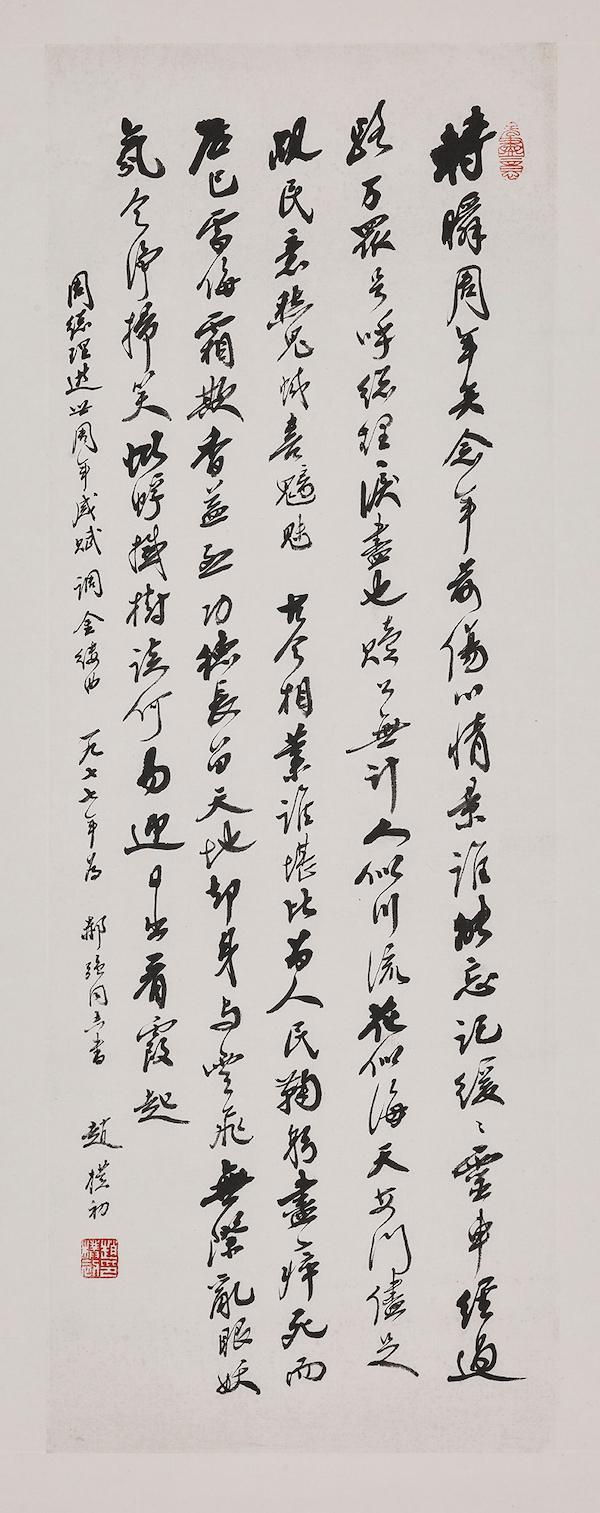 轉瞬周年矣念年前傷心情景誰能忘記緩〻靈車經過
路万眾号呼總理淚盡也贖公無計人似川流花似海天安門儘足
覘民意 鬼蜮 魑魅 古今相業誰堪比為人民鞠躬盡瘁死而
后已雪侮霜欺香益烈功德長留天地却身与雲飛無際亂眼妖
氛今淨掃笑蚍蜉撼樹談何易迎日出看霞起
周總理逝世周年感賦 調金縷曲 一九七七年為 郝強同志書 趙樸初
趙樸初印